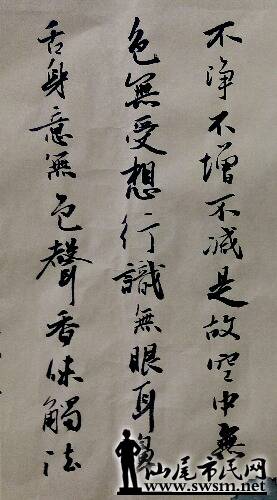 不净不增不减是故空中無
色無受想行識無眼耳鼻
舌身意無色聲香味觸法
汕尾市民网
www.swsm.net